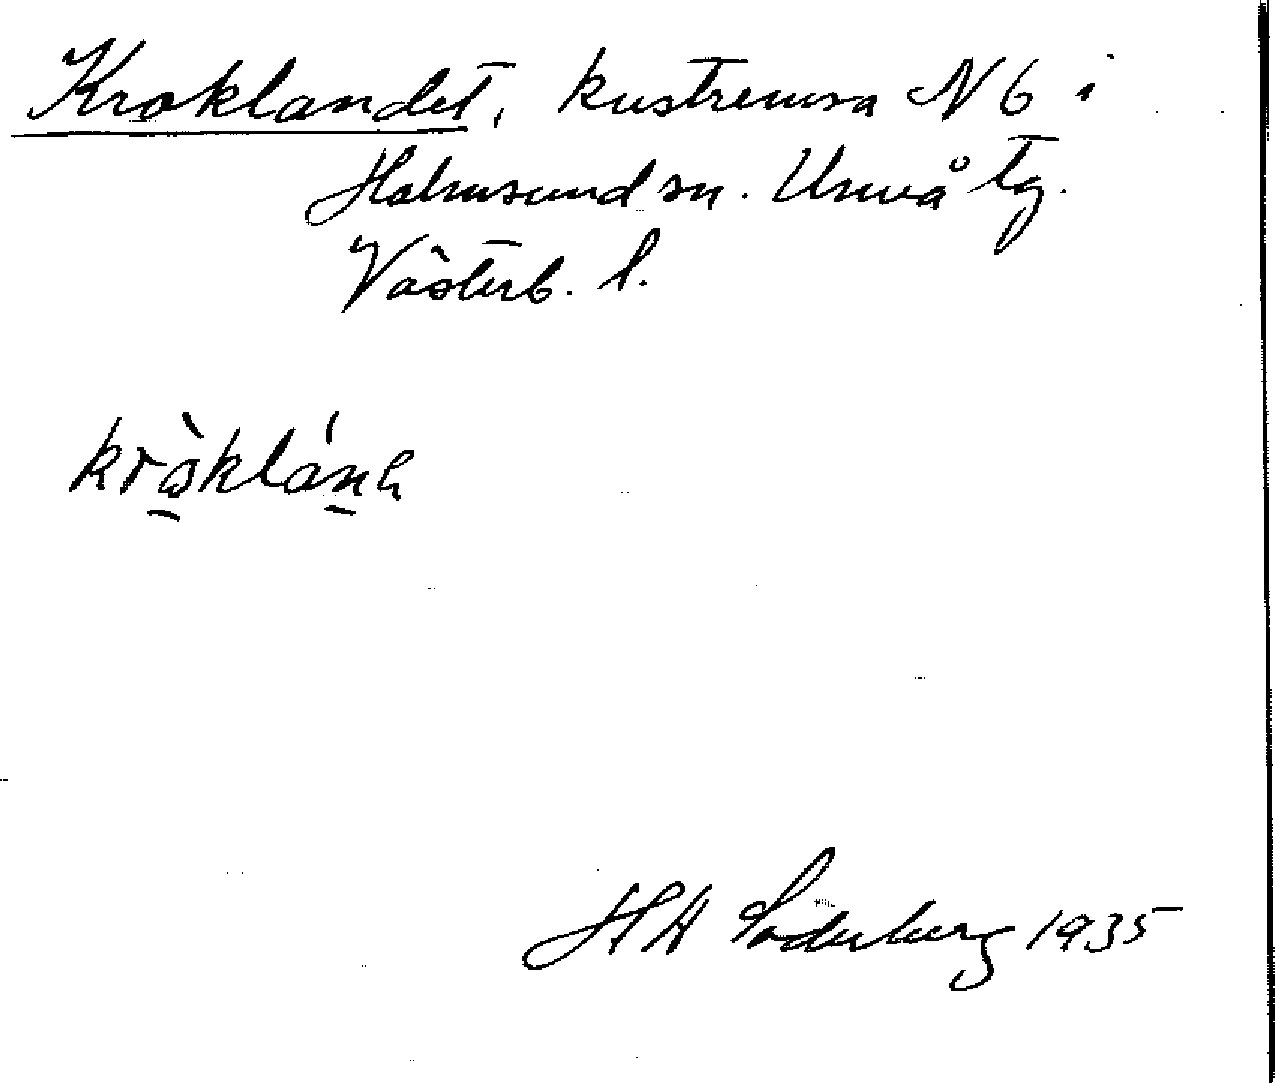 Kroklandet, kustremsa N 6 i
Holmsund sn. Umeå tg.
Västerb. l.
HH Söderberg 1935